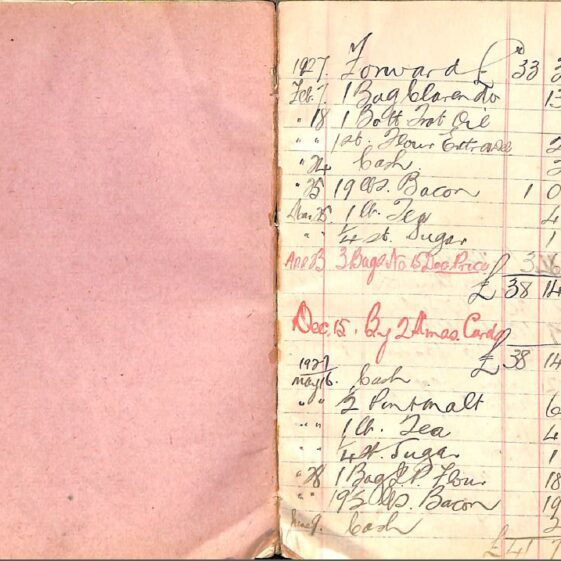 1927. Forward £ 33 3
Feb. 7. 1 Bag Clarendo 13
" 18 1 Bott Oil
" " 1 st. Flour 2
" 24 Cash 3
" 25 19 lbs. Bacon 1 0
Mar. 25. 1 lb. Tea 4
" " 1/4 st. Sugar 1
3 Bags No 15 Price 3 16
£ 38 14
Dec. 15. By 2 Cards
£ 38 14
1927
May 16. Cash
" " 1/2 Pint Malt 6
" " 1 lb. Tea 4
" " 1/4 st. Sugar 1
" 28 1 Bag P Flour 18
" " 19 1/2 lbs. Bacon 19
June 9. Cash 2
£ 41 7